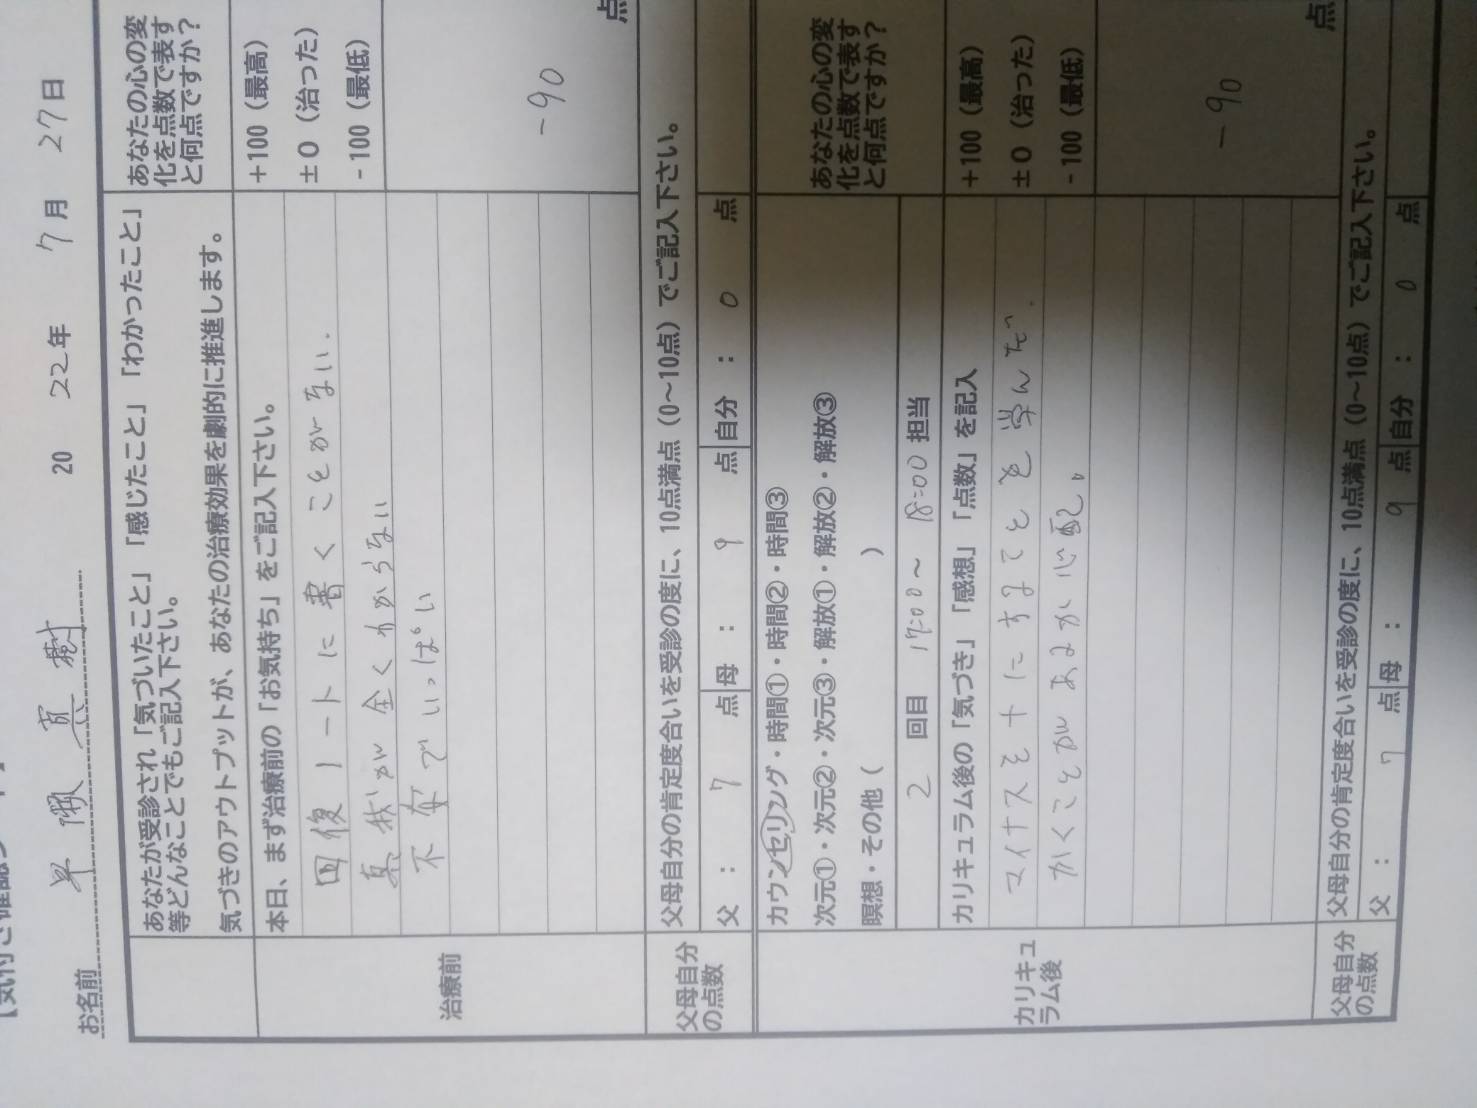 お名前 早瀬 真樹 20 22年 7月 27日
あなたが受診され「気づいたこと」「感じたこと」「わかったこと」
等どんなことでもご記入下さい。
気づきのアウトプットが、あなたの治療効果を劇的に推進します。
あなたの心の変
化を点数で表す
と何点ですか？
治療前
本日、まず治療前の「お気持ち」をご記入下さい。
回復ノートに書くことがない.
真我が全くわからない
不安でいっぱい
+100（最高）
±0（治った）
-100（最低）
-90
点
父母自分
の点数
父母自分の肯定度合いを受診の度に、10点満点（0～10点）でご記入下さい。
父 ： 7 点 母 ： 9 点 自分 ： 0 点
カウンセリング・時間①・時間②・時間③
次元①・次元②・次元③・解放①・解放②・解放③
瞑想・その他（ ）
2 回目 17:00 ～ 18:00 担当
あなたの心の変
化を点数で表す
と何点ですか？
カリキュ
ラム後
カリキュラム後の「気づき」「感想」「点数」を記入
マイナスを＋にすることを学んだ.
かくことがあるか心配。
+100（最高）
±0（治った）
-100（最低）
-90
点
父母自分
の点数
父母自分の肯定度合いを受診の度に、10点満点（0～10点）でご記入下さい。
父 ： 7 点 母 ： 9 点 自分 ： 0 点